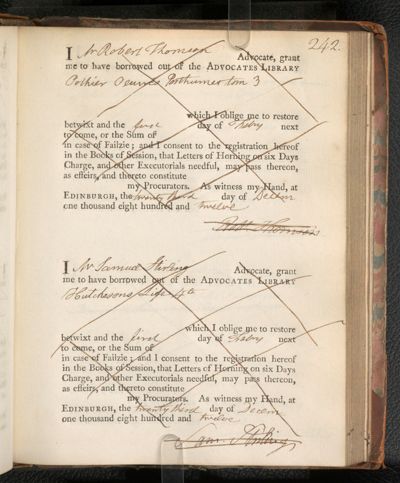 242.
I Mr Robert Thomson Advocate, grant
me to have borrowed out of the ADVOCATES LIBRARY
Pothier Oeuvres Posthumes tom 3
which I oblige me to restore
betwixt and the first day of Feby next
to come, or the Sum of
in case of Failzie; and I consent to the registration hereof
in the Books of Session, that Letters of Horning on six Days
Charge, and other Executorials needful, may pass thereon,
as effeirs, and thereto constitute
my Procurators. As witness my Hand, at
EDINBURGH, the twenty third day of Decem
one thousand eight hundred and twelve
Robt Thomson
I Mr Samuel Stirling Advocate, grant
me to have borrowed out of the ADVOCATES LIBRARY
Hutchesons Life 4to
which I oblige me to restore
betwixt and the first day of Feby next
to come, or the Sum of
in case of Failzie; and I consent to the registration hereof
in the Books of Session, that Letters of Horning on six Days
Charge, and other Executorials needful, may pass thereon,
as effeirs, and thereto constitute
my Procurators. As witness my Hand, at
EDINBURGH, the twenty third day of Decem
one thousand eight hundred and twelve
Sam. Stirling